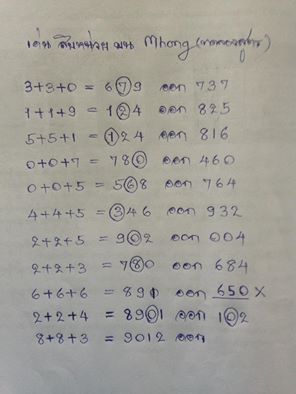 เด่น สิบหน่วย บน Mhong
3+3+0 = 679 ออก 737
1+1+9 = 124 ออก 825
5+5+1 = 124 ออก 816
0+0+7 = 780 ออก 460
0+0+5 = 568 ออก 764
4+4+5 = 346 ออก 932
2+2+5 = 902 ออก 004
2+2+3 = 780 ออก 684
6+6+6 = 891 ออก 650 X
2+2+4 = 8901 ออก 102
8+8+3 = 9012 ออก